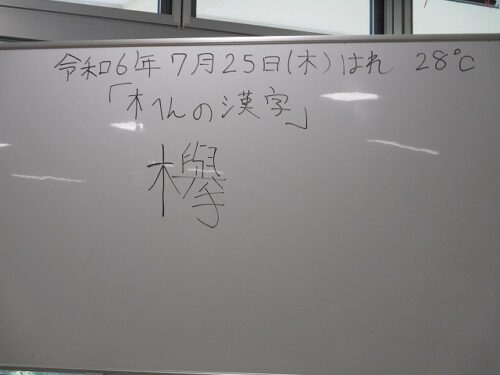 令和6年 7月25日(木) はれ 28℃
「木へんの漢字」
欅